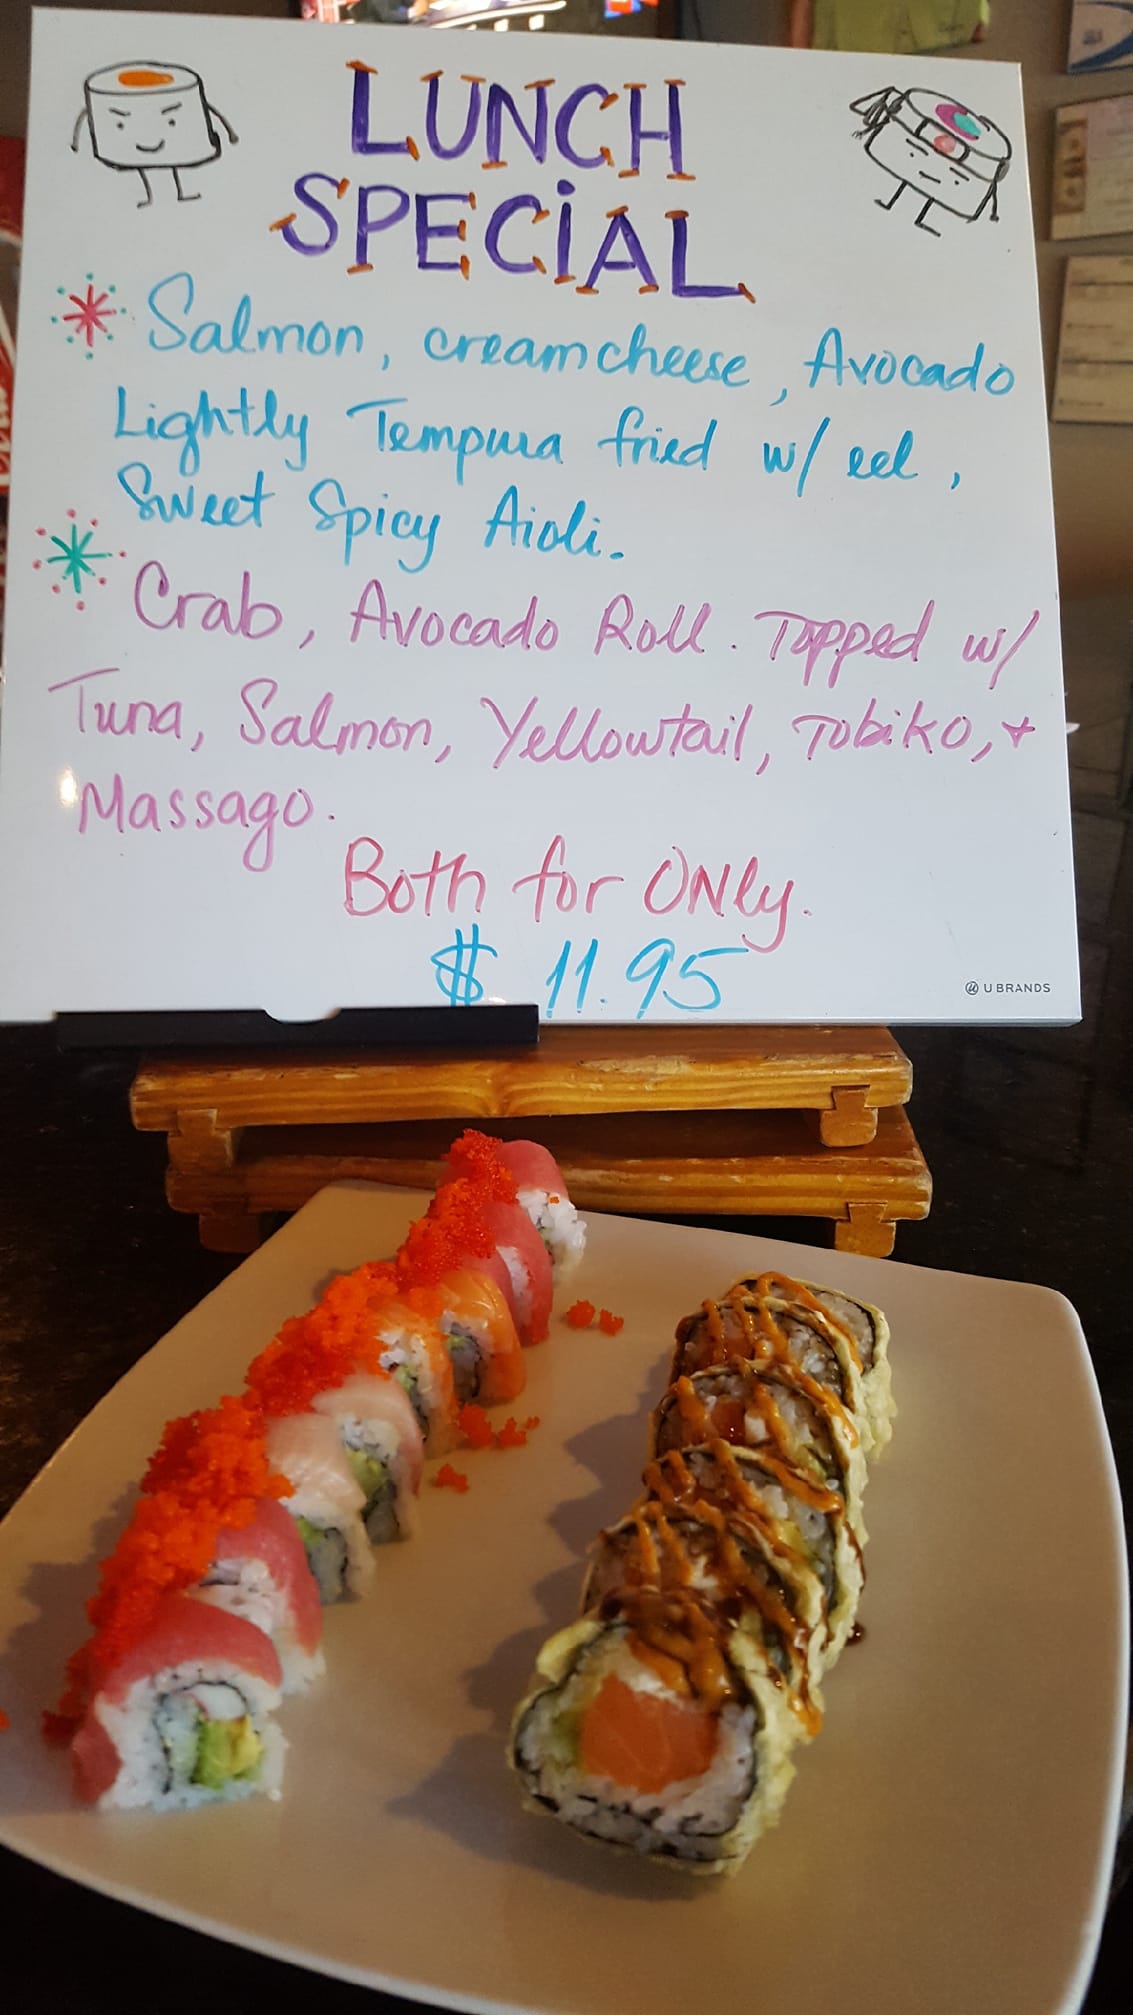 LUNCH
SPECiAL
Salmon, creamcheese, Avocado
Lightly Tempura fried w/ eel,
Sweet Spicy Aioli.
Crab, Avocado Roll. Topped w/
Tuna, Salmon, Yellowtail, Tobiko, +
Massago.
Both for ONly.
$ 11.95
U BRANDS